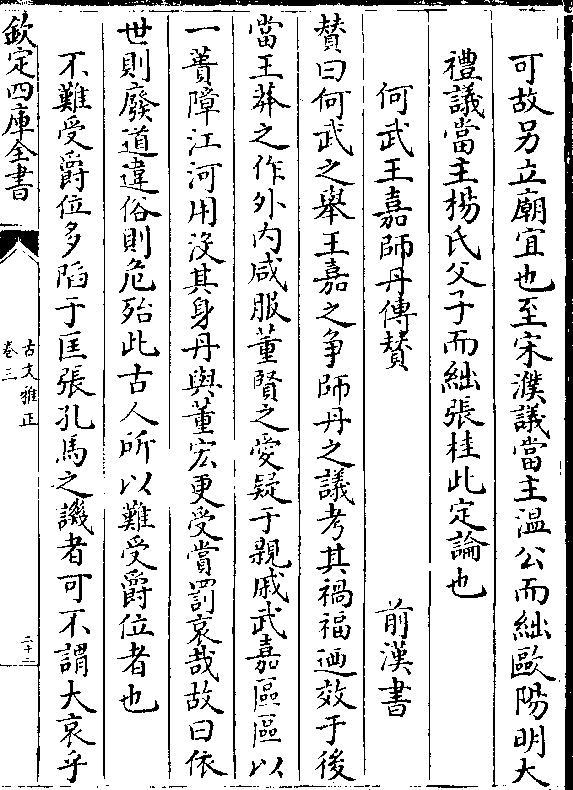 可故另立廟宜也至宋濮議當主溫公而絀歐陽明大
禮議當主楊氏父子而絀張桂此定論也
何武王嘉師丹傳贊 前漢書
贊曰何武之舉王嘉之爭師丹之議考其禍福迺效于後
當王莽之作外內咸服董賢之愛疑于親戚武嘉區區以
一蕢障江河用沒其身丹與董宏更受賞罰哀哉故曰依
世則廢道違俗則危殆此古人所以難受爵位者也
不難受爵位多陷于匡張孔馬之譏者可不謂大哀乎
欽定四庫全書
古文雅正
卷三
二十二